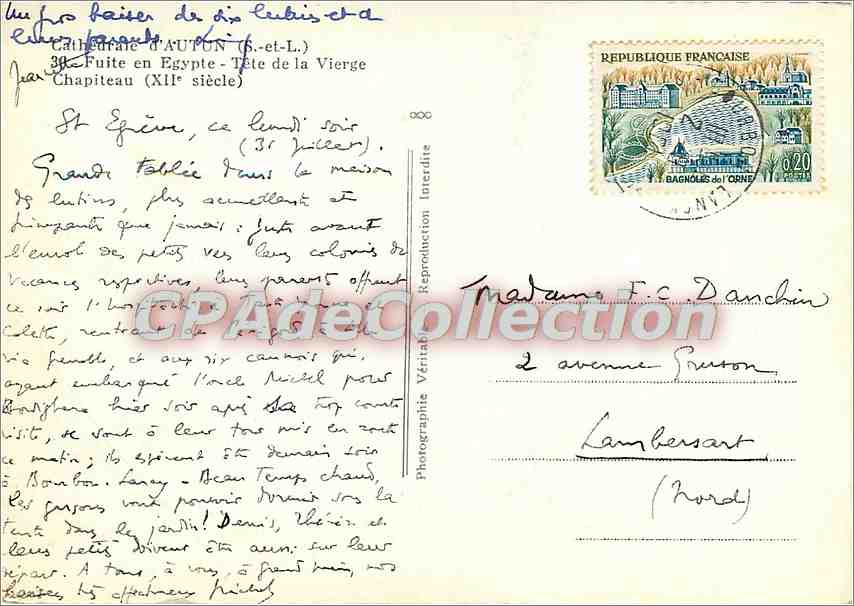 Un gros baiser des six lutins et d
leurs parents.
Cathédrale d'AUTUN (S.-et-L.)
30 - Fuite en Egypte - Tête de la Vierge
Chapiteau (XIIe siècle)
St Egrève, ce lundi soir
(31 Juillet).
Grande tablée dans la maison
des lutins, plus accueillante et
pimpante que jamais : juste avant
l'envol des petits vers leurs colonies de
vacances respectives, leurs parents offrent
ce soir l'hospitalité à
Colette, rentrant de
via Grenoble, et aux six qui,
ayant embarqué l'oncle Michel pour
Bordighera hier soir après trop courte
visite, se sont à leur tour mis en route
ce matin ; ils espèrent être demain soir
à Bourbon-Lancy - Beau Temps chaud,
les garçons vont pouvoir dormir sous la
tente dans le jardin ! Denis, Thérèse et
leurs petits doivent être aussi sur leur
départ. A tous, à vous, à grand mère, nos
baisers très affectueux Michel
Photographie Véritable - Reproduction Interdite
REPUBLIQUE FRANÇAISE
0,20
POSTES
BAGNOLES de l'ORNE
Madame F.C. Danchin
2 avenue Gruson
Lambersart
(Nord)
CPAdeCollection